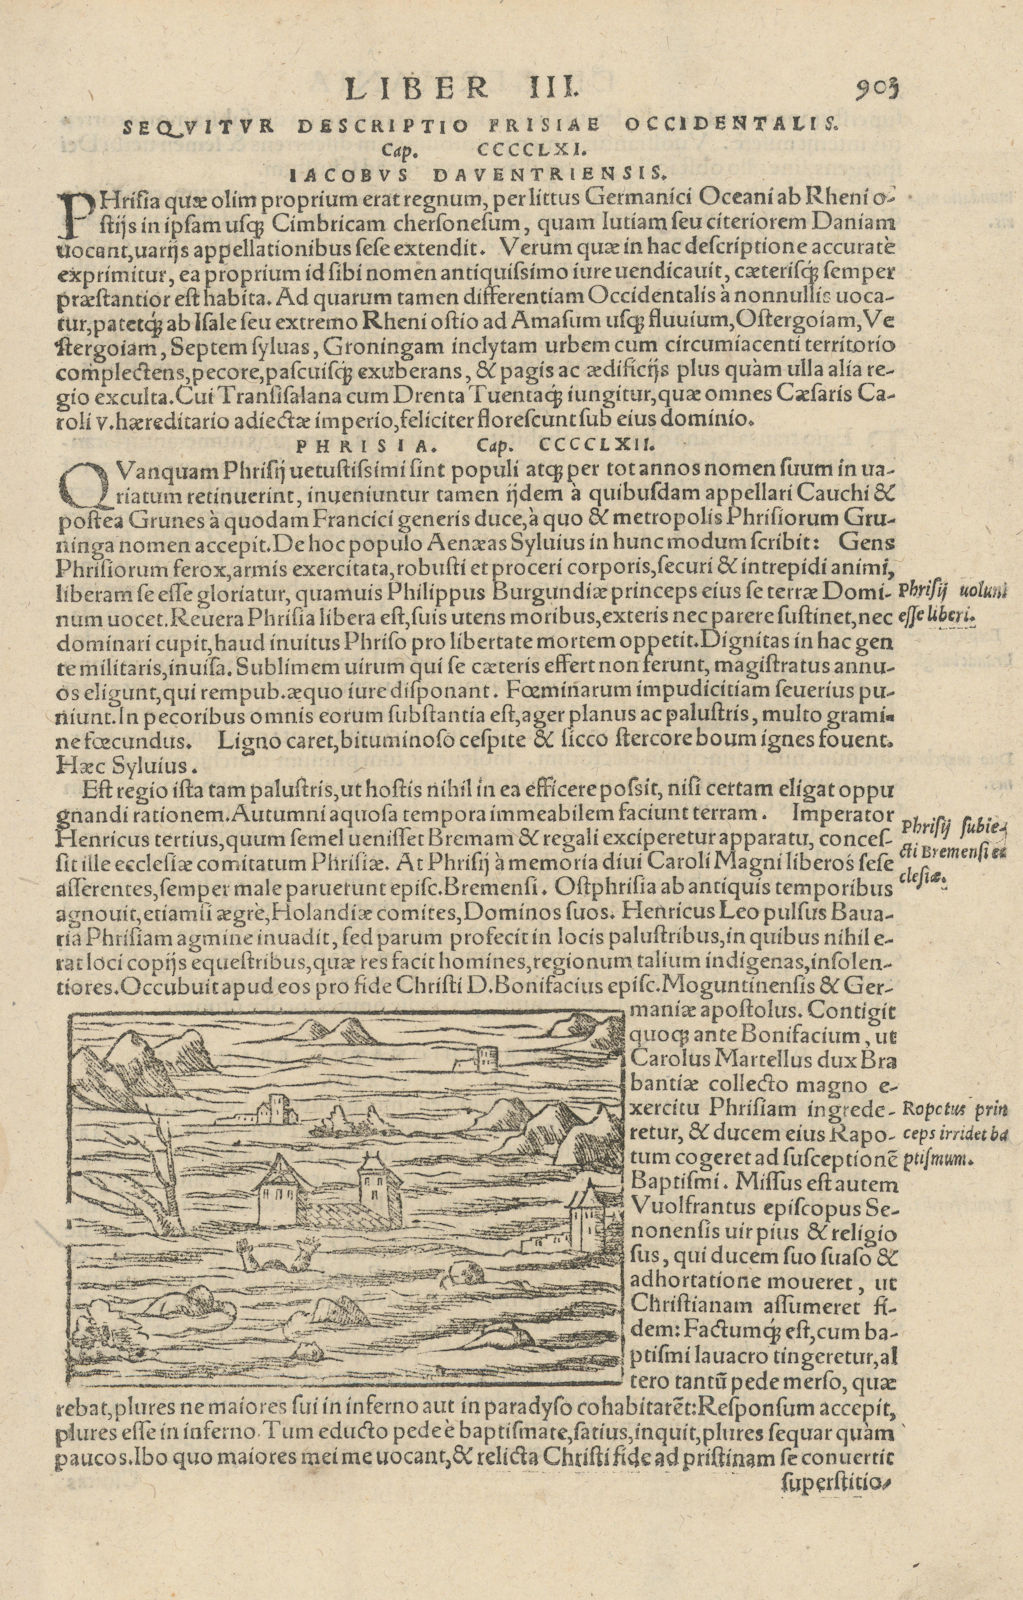 LIBER III. 903
SEQVITVR DESCRIPTIO FRISIAE OCCIDENTALIS.
Cap. CCCCLXI.
IACOBVS DAVENTRIENSIS.
PHrisia quæ olim proprium erat regnum, per littus Germanici Oceani ab Rheni o-
stijs in ipsam usq; Cimbricam chersonesum, quam Iutiam seu citeriorem Daniam
uocant, uarijs appellationibus sese extendit. Verum quæ in hac descriptione accuratè
exprimitur, ea proprium id sibi nomen antiquissimo iure uendicauit, cæterisq; semper
præstantior est habita. Ad quarum tamen differentiam Occidentalis à nonnullis uoca-
tur, patetq; ab Isale seu extremo Rheni ostio ad Amasum usq; fluuium, Ostergoiam, Ve
stergoiam, Septem syluas, Groningam inclytam urbem cum circumiacenti territorio
complectens, pecore, pascuisq; exuberans, & pagis ac ædificijs plus quàm ulla alia re-
gio exculta. Cui Transisalana cum Drenta Tuentaq; iungitur, quæ omnes Cæsaris Ca-
roli v. hæreditario adiectæ imperio, feliciter florescunt sub eius dominio.
PHRISIA. Cap. CCCCLXII.
QVanquam Phrisij uetustissimi sint populi atq; per tot annos nomen suum in ua-
riatum retinuerint, inueniuntur tamen ijdem à quibusdam appellari Cauchi &
postea Grunes à quodam Francici generis duce, à quo & metropolis Phrisiorum Gru-
ninga nomen accepit. De hoc populo Aenæas Syluius in hunc modum scribit: Gens
Phrisiorum ferox, armis exercitata, robusti et proceri corporis, securi & intrepidi animi,
liberam se esse gloriatur, quamuis Philippus Burgundiæ princeps eius se terræ Domi-
num uocet. Reuera Phrisia libera est, suis utens moribus, exteris nec parere sustinet, nec
dominari cupit, haud inuitus Phriso pro libertate mortem oppetit. Dignitas in hac gen
te militaris, inuisa. Sublimem uirum qui se cæteris effert non ferunt, magistratus annu-
os eligunt, qui rempub. æquo iure disponant. Fœminarum impudicitiam seuerius pu-
niunt. In pecoribus omnis eorum substantia est, ager planus ac palustris, multo grami-
ne fœcundus. Ligno caret, bituminoso cespite & sicco stercore boum ignes fouent.
Hæc Syluius.
Phrisij uolunt
esse liberi.
Est regio ista tam palustris, ut hostis nihil in ea efficere possit, nisi certam eligat oppu
gnandi rationem. Autumni aquosa tempora immeabilem faciunt terram. Imperator
Henricus tertius, quum semel uenisset Bremam & regali exciperetur apparatu, conces-
sit ille ecclesiæ comitatum Phrisiæ. At Phrisij à memoria diui Caroli Magni liberos sese
asserentes, semper male paruerunt episc. Bremensi. Ostphrisia ab antiquis temporibus
agnouit, etiamsi ægrè, Holandiæ comites, Dominos suos. Henricus Leo pulsus Baua-
ria Phrisiam agmine inuadit, sed parum profecit in locis palustribus, in quibus nihil e-
rat loci copijs equestribus, quæ res facit homines, regionum talium indigenas, insolen-
tiores. Occubuit apud eos pro fide Christi D. Bonifacius episc. Moguntinensis & Ger-
Phrisij subie-
cti Bremensi ec
clesiæ.
maniæ apostolus. Contigit
quoq; ante Bonifacium, ut
Carolus Martellus dux Bra
bantiæ collecto magno e-
xercitu Phrisiam ingrede-
retur, & ducem eius Rapo-
tum cogeret ad susceptionẽ
Baptismi. Missus est autem
Vuolfrantus episcopus Se-
nonensis uir pius & religio
sus, qui ducem suo suaso &
adhortatione moueret, ut
Christianam assumeret fi-
dem: Factumq; est, cum ba-
ptismi lauacro tingeretur, al
tero tantũ pede merso, quæ
Ropotus prin
ceps irridet ba
ptismum.
rebat, plures ne maiores sui in inferno aut in paradyso cohabitarẽt: Responsum accepit,
plures esse in inferno. Tum educto pede è baptismate, satius, inquit, plures sequar quàm
paucos. Ibo quo maiores mei me uocant, & relicta Christi fide ad pristinam se conuertit
superstitio-